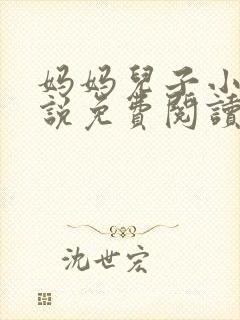 妈妈兒子小
說免費閱讀
沈世宏